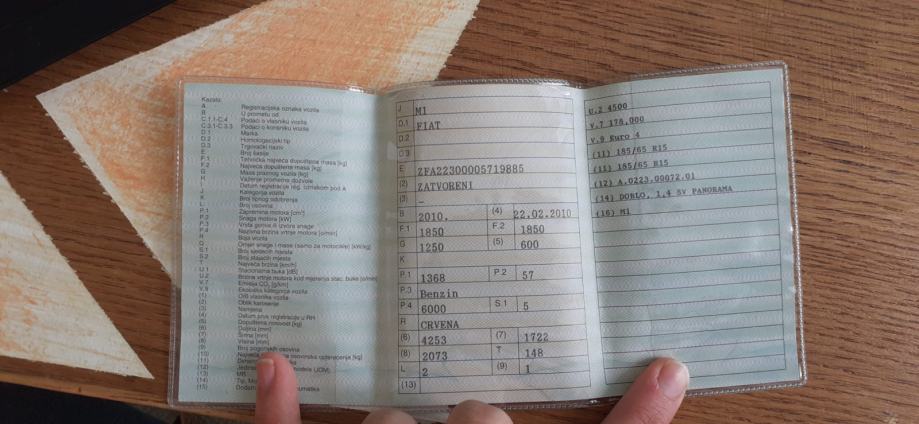 Kazalo:
A Registracijska oznaka vozila
B U prometu od
C.1.1-C.4 Podaci o vlasniku vozila
C.3.1-C.3.3 Podaci o korisniku vozila
D.1 Marka
D.2 Homologacijski tip
D.3 Trgovački naziv
E Broj šasije
F.1 Tehnička najveća dopuštena masa [kg]
F.2 Najveća dopuštena masa [kg]
G Masa praznog vozila [kg]
H Važenje prometne dozvole
I Datum registracije reg. oznakom pod A
J Kategorija vozila
K Broj tipnog odobrenja
L Broj osovina
P.1 Zapremina motora [cm³]
P.2 Snaga motora [kW]
P.3 Vrsta goriva ili izvora snage
P.4 Nazivna brzina vrtnje motora [o/min]
R Boja vozila
Q Omjer snage i mase (samo za motocikle) [kW/kg]
S.1 Broj sjedećih mjesta
S.2 Broj stajaćih mjesta
T Najveća brzina [km/h]
U.1 Stacionarna buka [dB]
U.2 Brzina vrtnje motora kod mjerenja stac. buke [o/min]
V.7 Emisija CO₂ [g/km]
V.9 Ekološka kategorija vozila
(1) OIB vlasnika vozila
(2) Oblik karoserije
(3) Namjena
(4) Datum prve registracije u RH
(5) Dopuštena nosivost [kg]
(6) Duljina [mm]
(7) Širina [mm]
(8) Visina [mm]
(9) Broj pogonskih osovina
(10)
(11)
(12)
(13) MB
(14) Tip,
(15)
J M1
D.1 FIAT
D.2
D.3
E ZFA22300005719885
(2) ZATVORENI
(3) –
B 2010. (4) 22.02.2010
F.1 1850 F.2 1850
G 1250 (5) 600
K
P.1 1368 P.2 57
P.3 Benzin
P.4 6000 S.1 5
R CRVENA
(6) 4253 (7) 1722
(8) 2073 T 148
L 2 (9) 1
(13)
U.2 4500
V.7 178,000
V.9 Euro 4
(11) 185/65 R15
(11) 185/65 R15
(12) A.0223.00072.01
(14) DOBLO, 1,4 SV PANORAMA
(16) M1